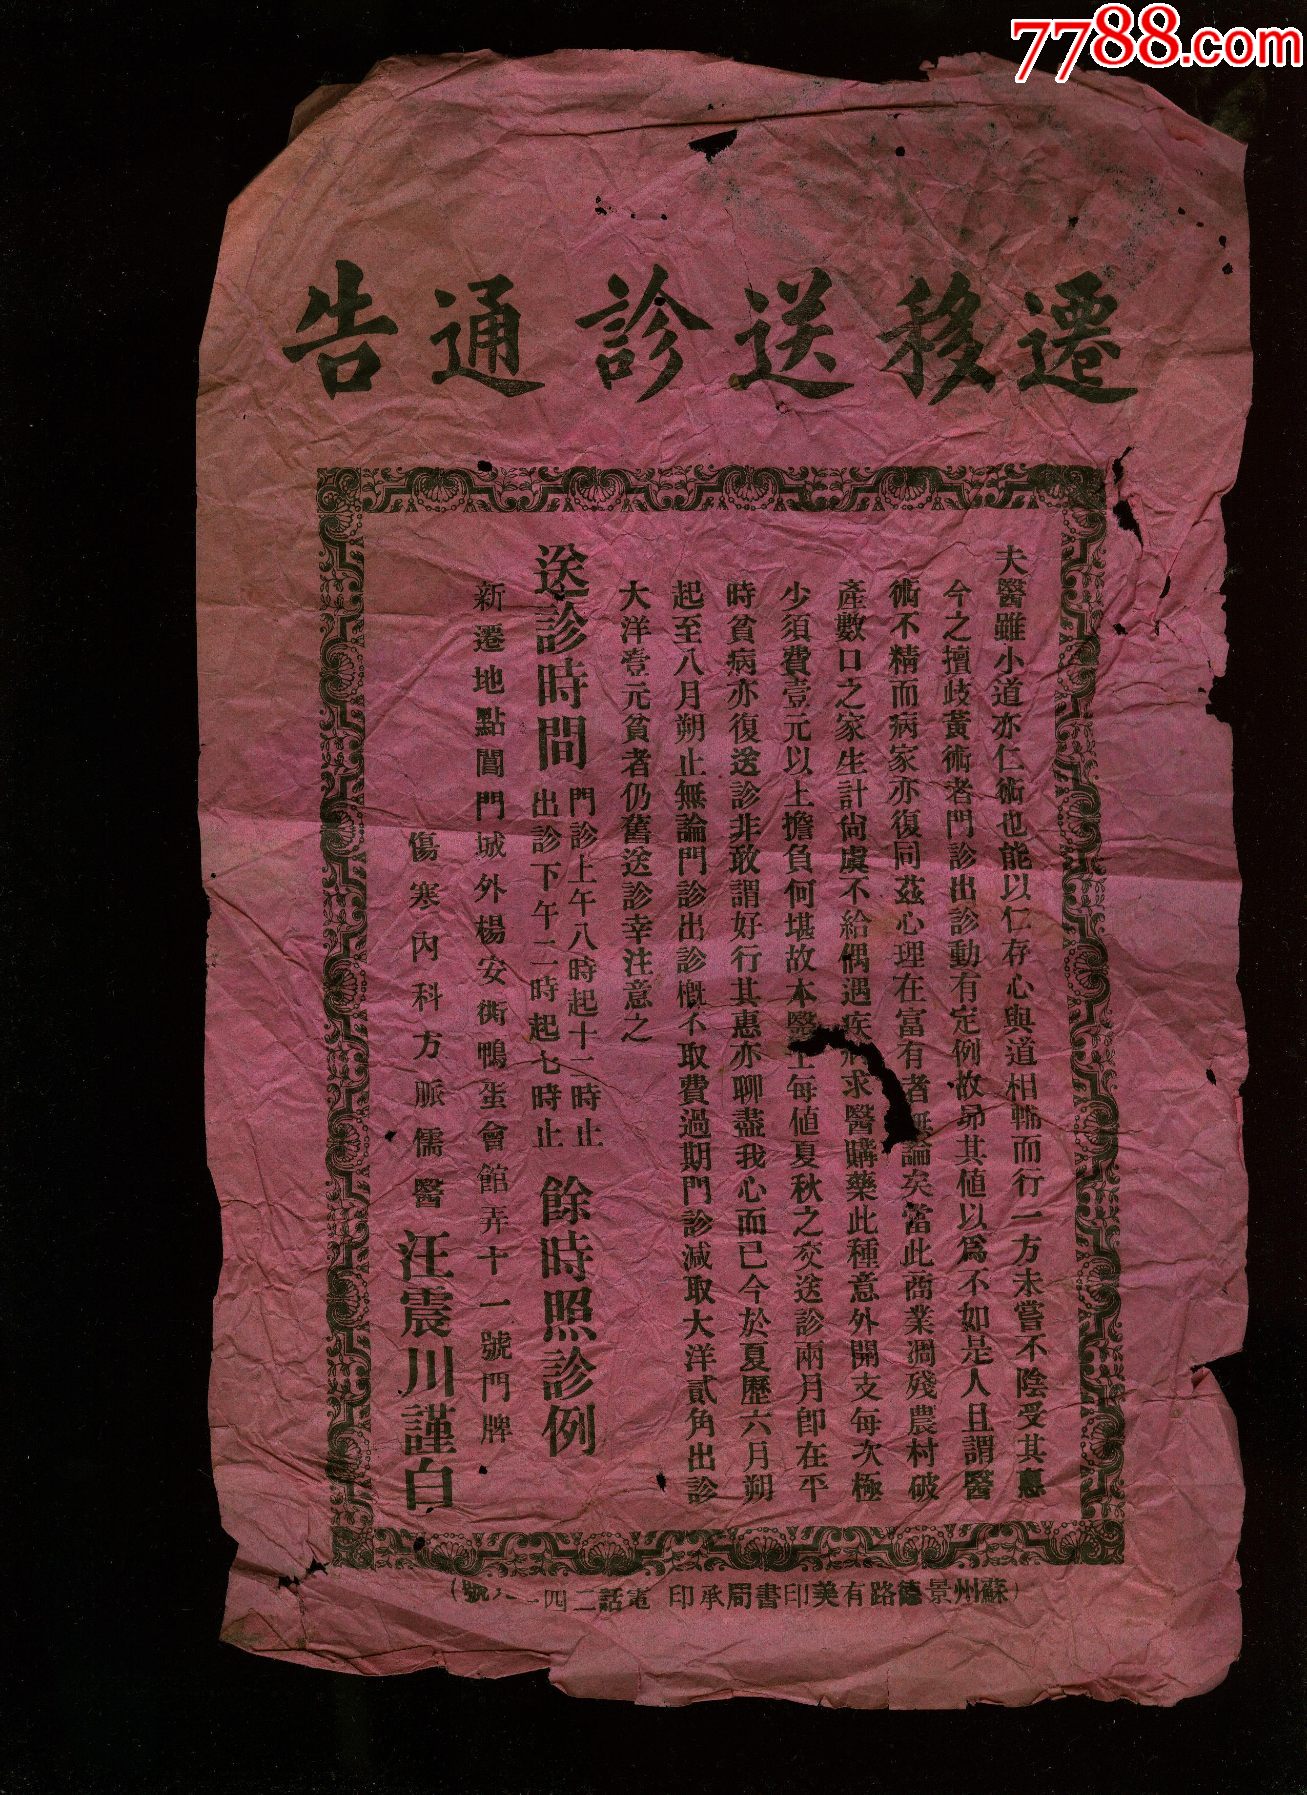 7788.com
遷移送診通告
夫醫雖小道亦仁術也能以仁存心與道相輔而行一方未嘗不陰受其惠
今之擅歧黃術者門診出診動有定例故昻其值以爲不如是人且謂醫
術不精而病家亦復同茲心理在富有者無論矣當此商業凋殘農村破
產數口之家生計尙虞不給偶遇疾病求醫購藥此種意外開支每次極
少須費壹元以上擔負何堪故本醫士每値夏秋之交送診兩月卽在平
時貧病亦復送診非敢謂好行其惠亦聊盡我心而已今於夏歷六月朔
起至八月朔止無論門診出診槪不取費過期門診減取大洋貳角出診
大洋壹元貧者仍舊送診幸注意之
送診時間 門診上午八時起十一時止 餘時照診例
出診下午二時起七時止
新遷地點閶門城外楊安衖鴨蛋會館弄十一號門牌
傷寒內科方脈儒醫 汪震川謹白
(蘇州景德路有美印書局承印 電話二四一 號)